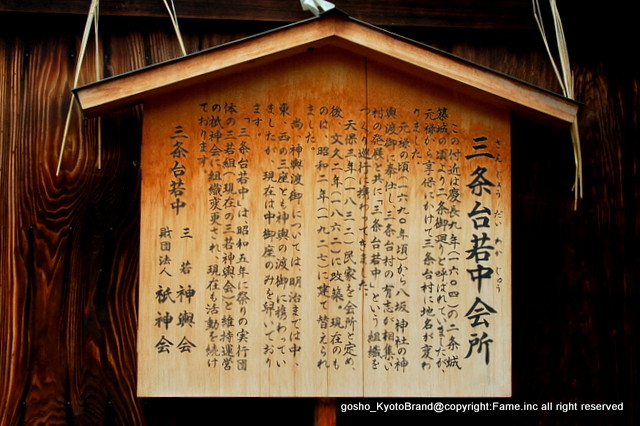 三条台若中会所
さんじょうだいわかじゅう
この付近は慶長九年(一六〇四)の二条城
築城の頃より二条御廻りと呼ばれていましたが、
元禄から享保にかけて三条台村に地名が変わ
りました。
元禄の頃(一六九〇年頃)から八坂神社の神
輿渡御に奉仕し、三条台村の有志が相集い
村の発展と共に「三条台若中」という組織を
つくり巡行に携わってきました。
天保三年(一八三二)民家を会所と定め、
後文久二年(一八六二)に改築。現在のも
のは、昭和二年(一九二七)に建て替えられ
ました。
尚、神輿渡御については、明治までは中、
東、西の三座とも神輿の渡御に携わってい
ましたが、現在は中御座のみを舁いており
ます。
「三条台若中」は昭和五年に祭りの実行団
体の三若組(現在の三若神輿会)と維持運営
の祇神会に組織変更され、現在も活動を続け
ております。
三条台若中
三若神輿会
財団法人 祇神会
gosho_KyotoBrand@copyright:Fame.inc all right reserved